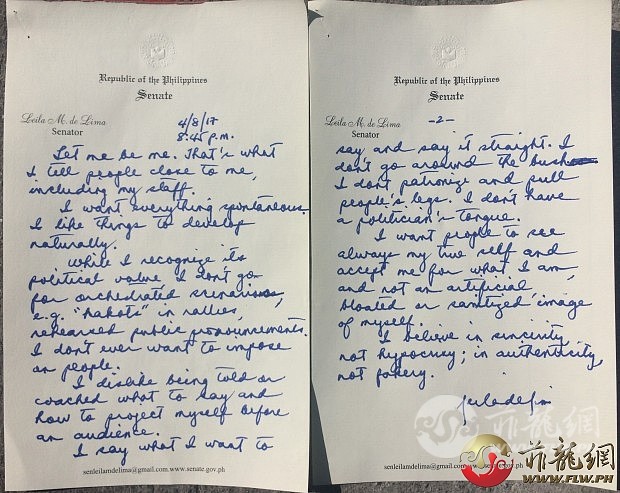 Republic of the Philippines
Senate
Leila M. de Lima
Senator
4/8/17
8:45 p.m.
Let me be me. That's what
I tell people close to me,
including my staff.
I want everything spontaneous.
I like things to develop
naturally.
While I recognize its
political value I don't go
for orchestrated scenarios,
e.g. "hakots" in rallies,
rehearsed public pronouncements.
I don't ever want to impose
on people.
I dislike being told or
coached what to say and
how to project myself before
an audience.
I say what I want to
senleilamdelima@gmail.com www.senate.gov.ph
Republic of the Philippines
Senate
Leila M. de Lima
Senator
-2-
say and say it straight. I
don't go around the bush
I don't patronize and pull
people's legs. I don't have
a politician's tongue.
I want people to see
always my true self and
accept me for what I am,
and not an artificial
bloated or sanitized image
of myself.
I believe in sincerity
not hypocrisy; in authenticity,
not fakery.
senleilamdelima@gmail.com www.senate.gov.ph
菲龍網
WWW.FLW.PH